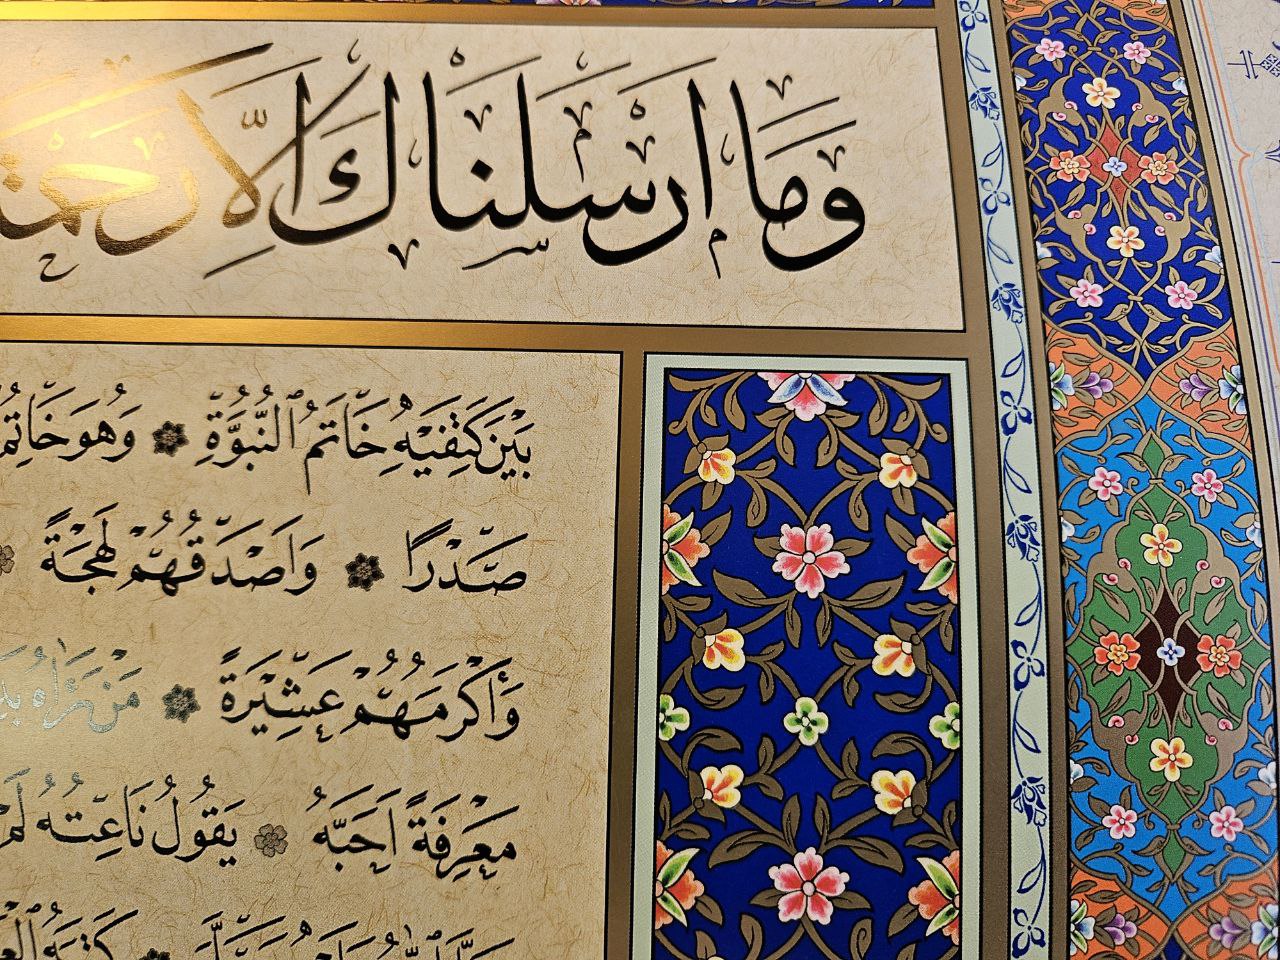 وَمَا اَرْسَلْنَاكَ اِلَّا رَحْمَةً
بَيْنَ كَتِفَيْهِ خَاتَمُ النُّبُوَّةِ وَهُوَ خَاتَمُ
صَدْرًا وَاَصْدَقُهُمْ لَهْجَةً
وَاَكْرَمُهُمْ عَشِيْرَةً مَنْ رَاٰهُ
مَعْرِفَةً اَحَبَّهُ يَقُولُ نَاعِتُهُ لَمْ